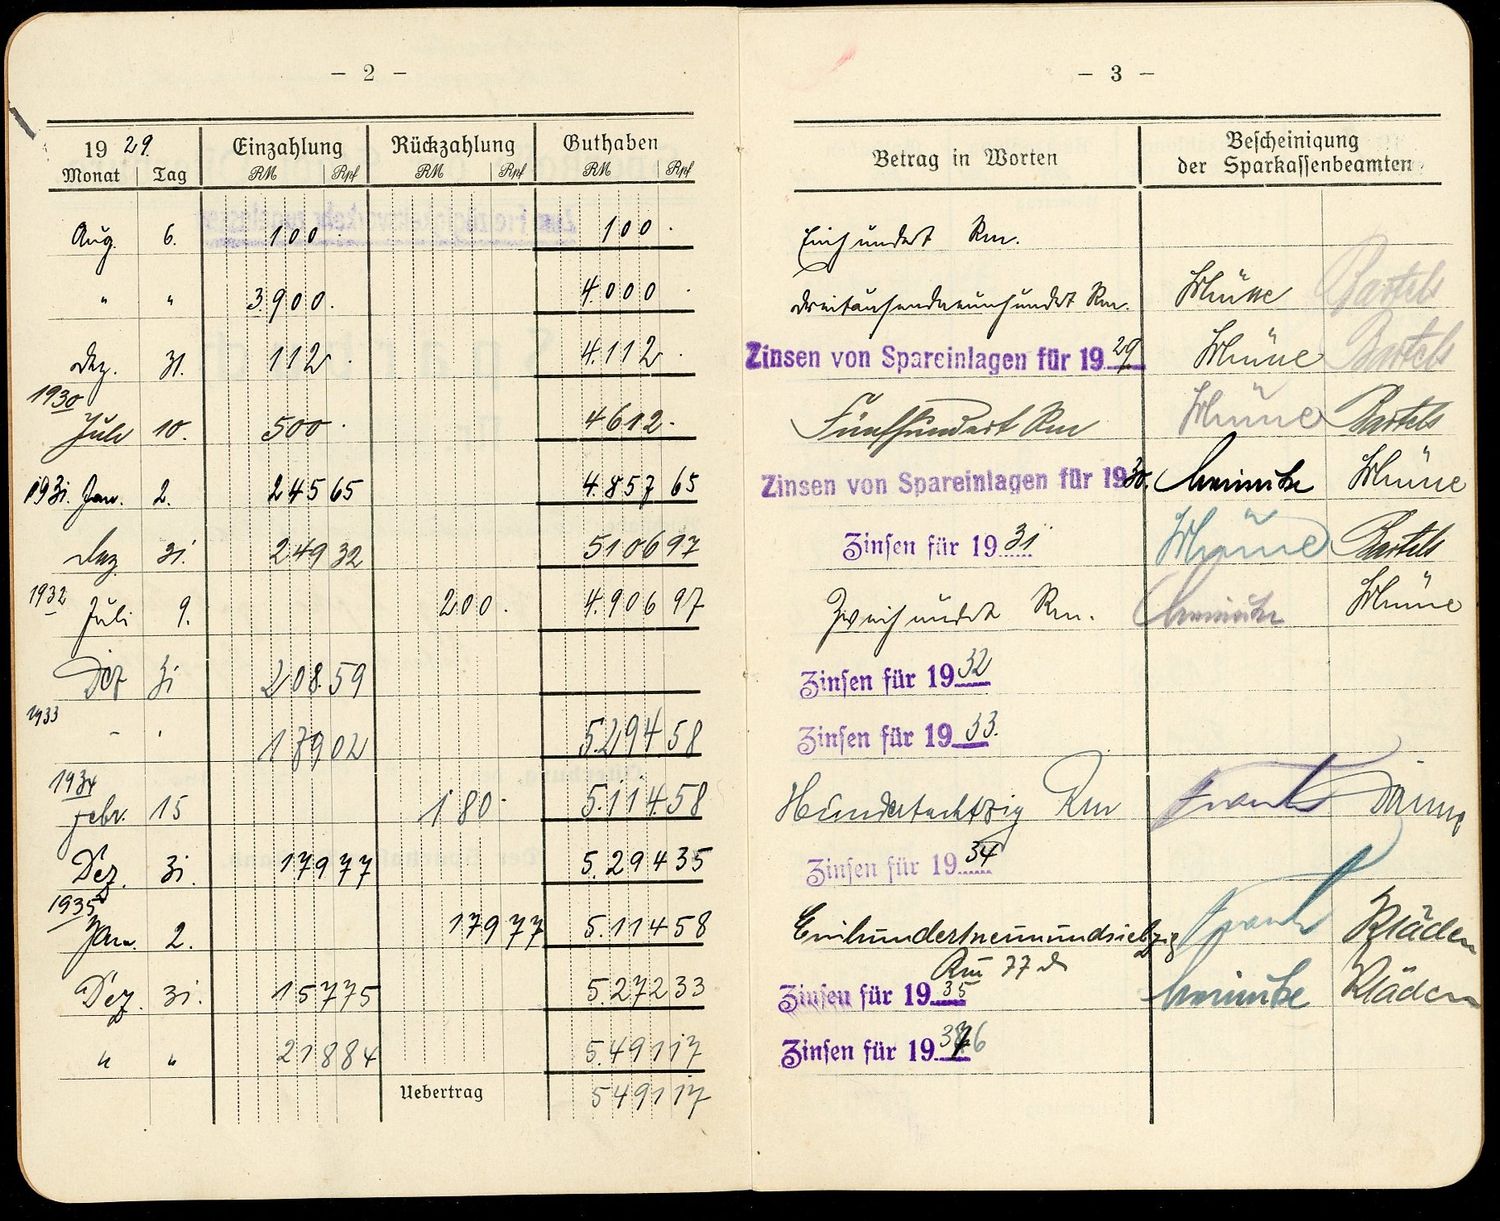 - 2 -
19 29. Einzahlung Rückzahlung Guthaben
Monat Tag RM Rpf RM Rpf RM Rpf
Aug. 6. 100. 100.
" " 3.900. 4.000.
Dez. 31. 112. 4.112.
1930
Juli 10. 500. 4612.
1931. Jan. 2. 245 65 4.857 65
Dez 31. 249 32 5106 97
1932
Juli 9. 200. 4.906 97
Dez 31 208 59
1933
" " 179 02 5.294 58
1934
Febr. 15 180.- 5.114.58
Dez. 31. 179 77 5.294 35
1935
Jan. 2. 179 77 5.114 58
Dez. 31. 157 75 5.272 33
" " 218 84 5.491 17
Uebertrag 5491 17
- 3 -
Betrag in Worten Bescheinigung
der Sparkassenbeamten
Einhundert Rm.
dreitausendneunhundert Rm. Bartels
Zinsen von Spareinlagen für 1929 Bartels
Fünfhundert Rm Bartels
Zinsen von Spareinlagen für 1930.
Zinsen für 1931 Bartels
Zweihundert Rm.
Zinsen für 1932
Zinsen für 1933.
Hundertachtzig Rm
Zinsen für 1934
Einhundertneunundsiebzig Kläden
Rm 77 d
Zinsen für 1935 Kläden
Zinsen für 1936